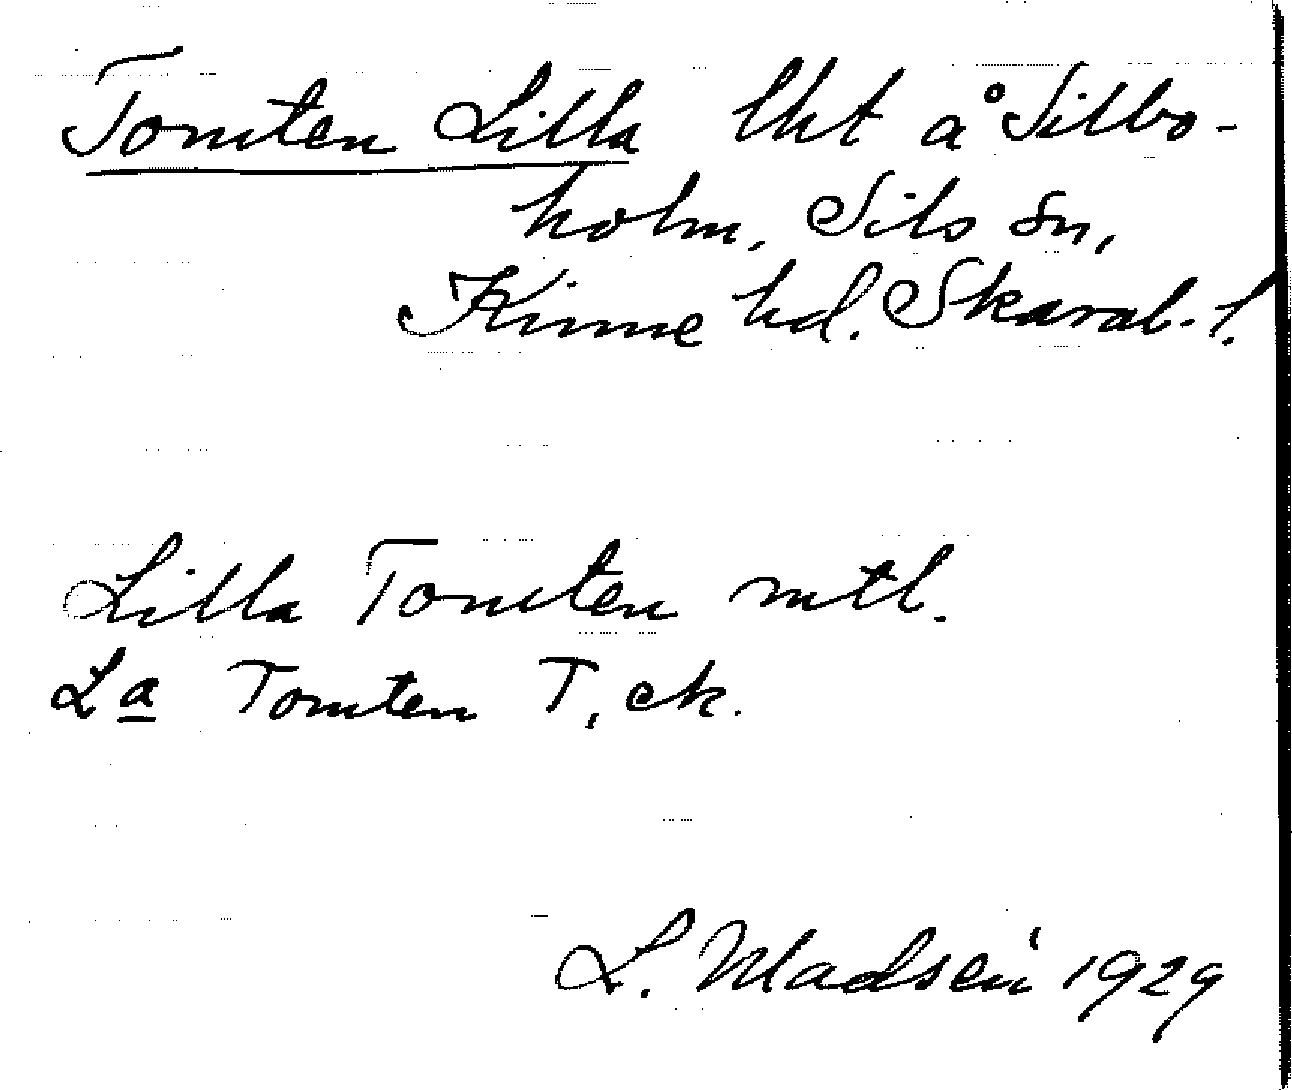 Tomten Lilla lht å Silbo-
holm, Sils sn,
Kinne hd. Skarab. l.
Lilla Tomten mtl.
La Tomten T. ek.
L. Madsén 1929